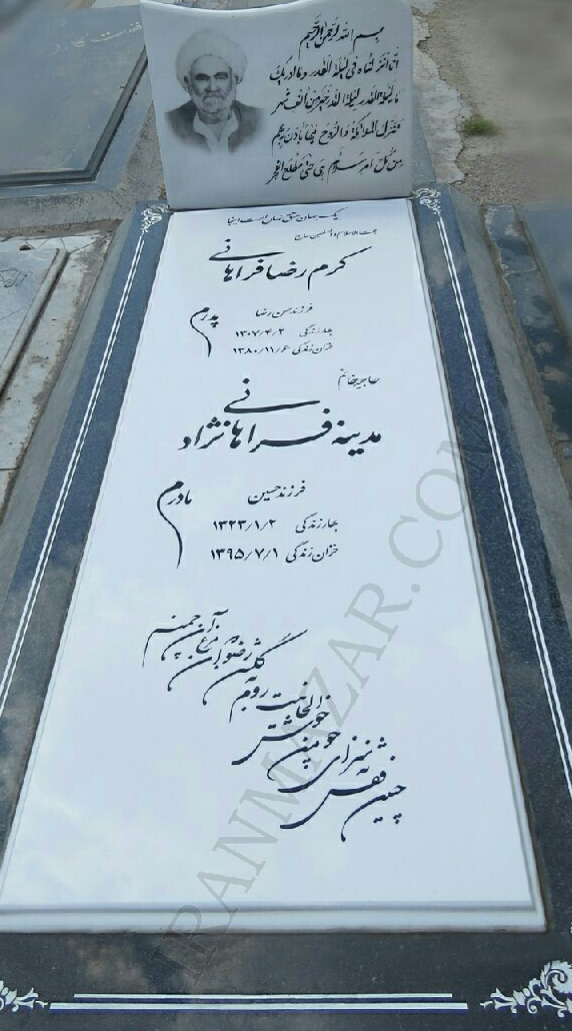 بسم الله الرحمن الرحیم
انا انزلناه فی لیلة القدر و ما ادریک
ما لیلة القدر لیلة القدر خیر من الف شهر
تنزل الملائکة والروح فیها باذن ربهم
من کل امر سلام هی حتی مطلع الفجر
یک جهان عشق نهان است اینجا
حجت الاسلام و المسلمین
کرم رضا فراهانی
پدرم
فرزند حسن رضا
بهار زندگی ۱۳۰۷/۴/۲
خزان زندگی ۱۳۸۰/۱۱/۶
حاجیه خانم
مدینه فراهانی نژاد
مادرم
فرزند حسین
بهار زندگی ۱۳۲۳/۱/۲
خزان زندگی ۱۳۹۵/۷/۱
چنین قفس نه سزای چو من خوش الحانیست
روم به گلشن رضوان که مرغ آن چمنم
IRANMAZAR.COM